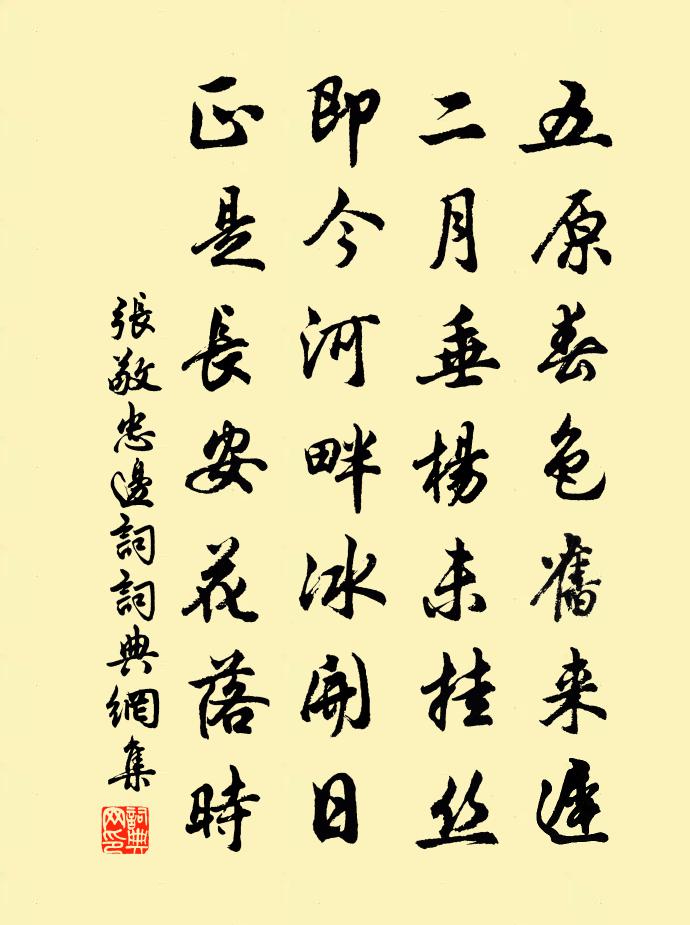 五原春色舊来遲
二月垂楊未挂丝
即今河畔冰開日
正是長安花落時
張敬忠邊詞詞典網集
詞典网印